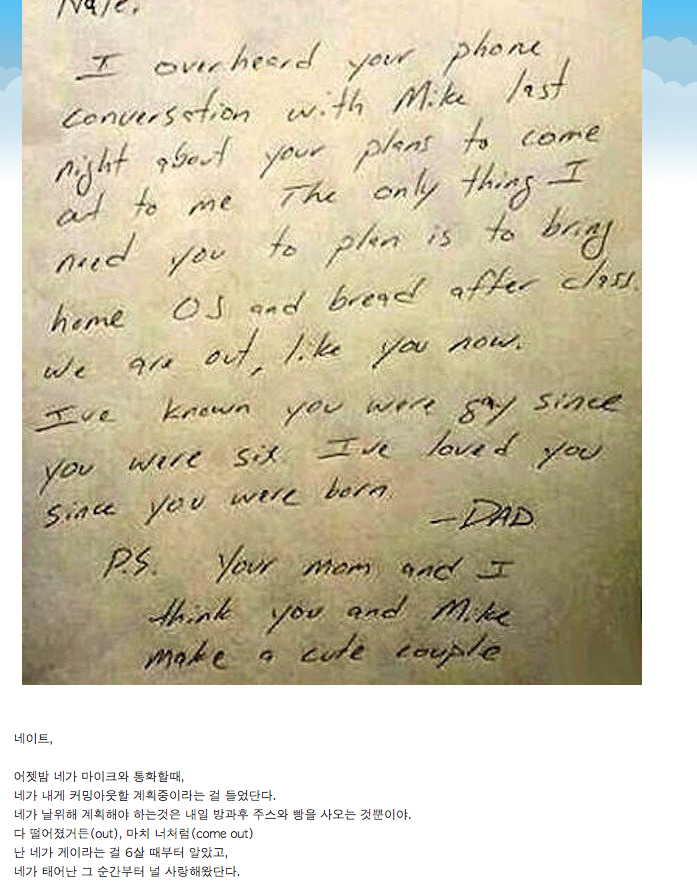 Nate,
I overheard your phone
conversation with Mike last
night about your plans to come
out to me The only thing I
need you to plan is to bring
home OJ and bread after class.
We are out, like you now.
I've known you were gay since
you were six. I've loved you
since you were born.
—DAD
P.S. Your mom and I
think you and Mike
make a cute couple
네이트,
어젯밤 네가 마이크와 통화할때,
네가 내게 커밍아웃할 계획중이라는 걸 들었단다.
네가 날위해 계획해야 하는것은 내일 방과후 주스와 빵을 사오는 것뿐이야.
다 떨어졌거든(out), 마치 너처럼(come out)
난 네가 게이라는 걸 6살 때부터 알았고,
네가 태어난 그 순간부터 널 사랑해왔단다.